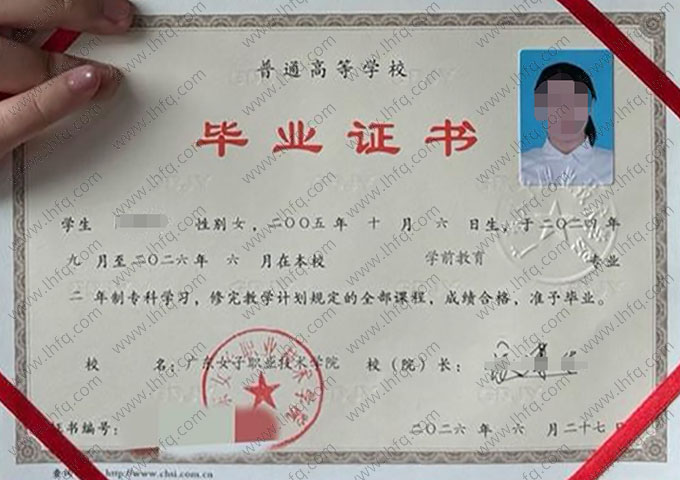 普通高等学校
毕业证书
学生 性别女，二〇〇五年 十 月 六 日生，于二〇二四年
九 月至二〇二六年 六 月在本校 学前教育 专业
二 年制专科学习，修完教学计划规定的全部课程，成绩合格，准予毕业。
校 名：广东女子职业技术学院 校（院）长：
证书编号： 二〇二六 年 六 月二十七日
http://www.chsi.com.cn
www.lhfq.com